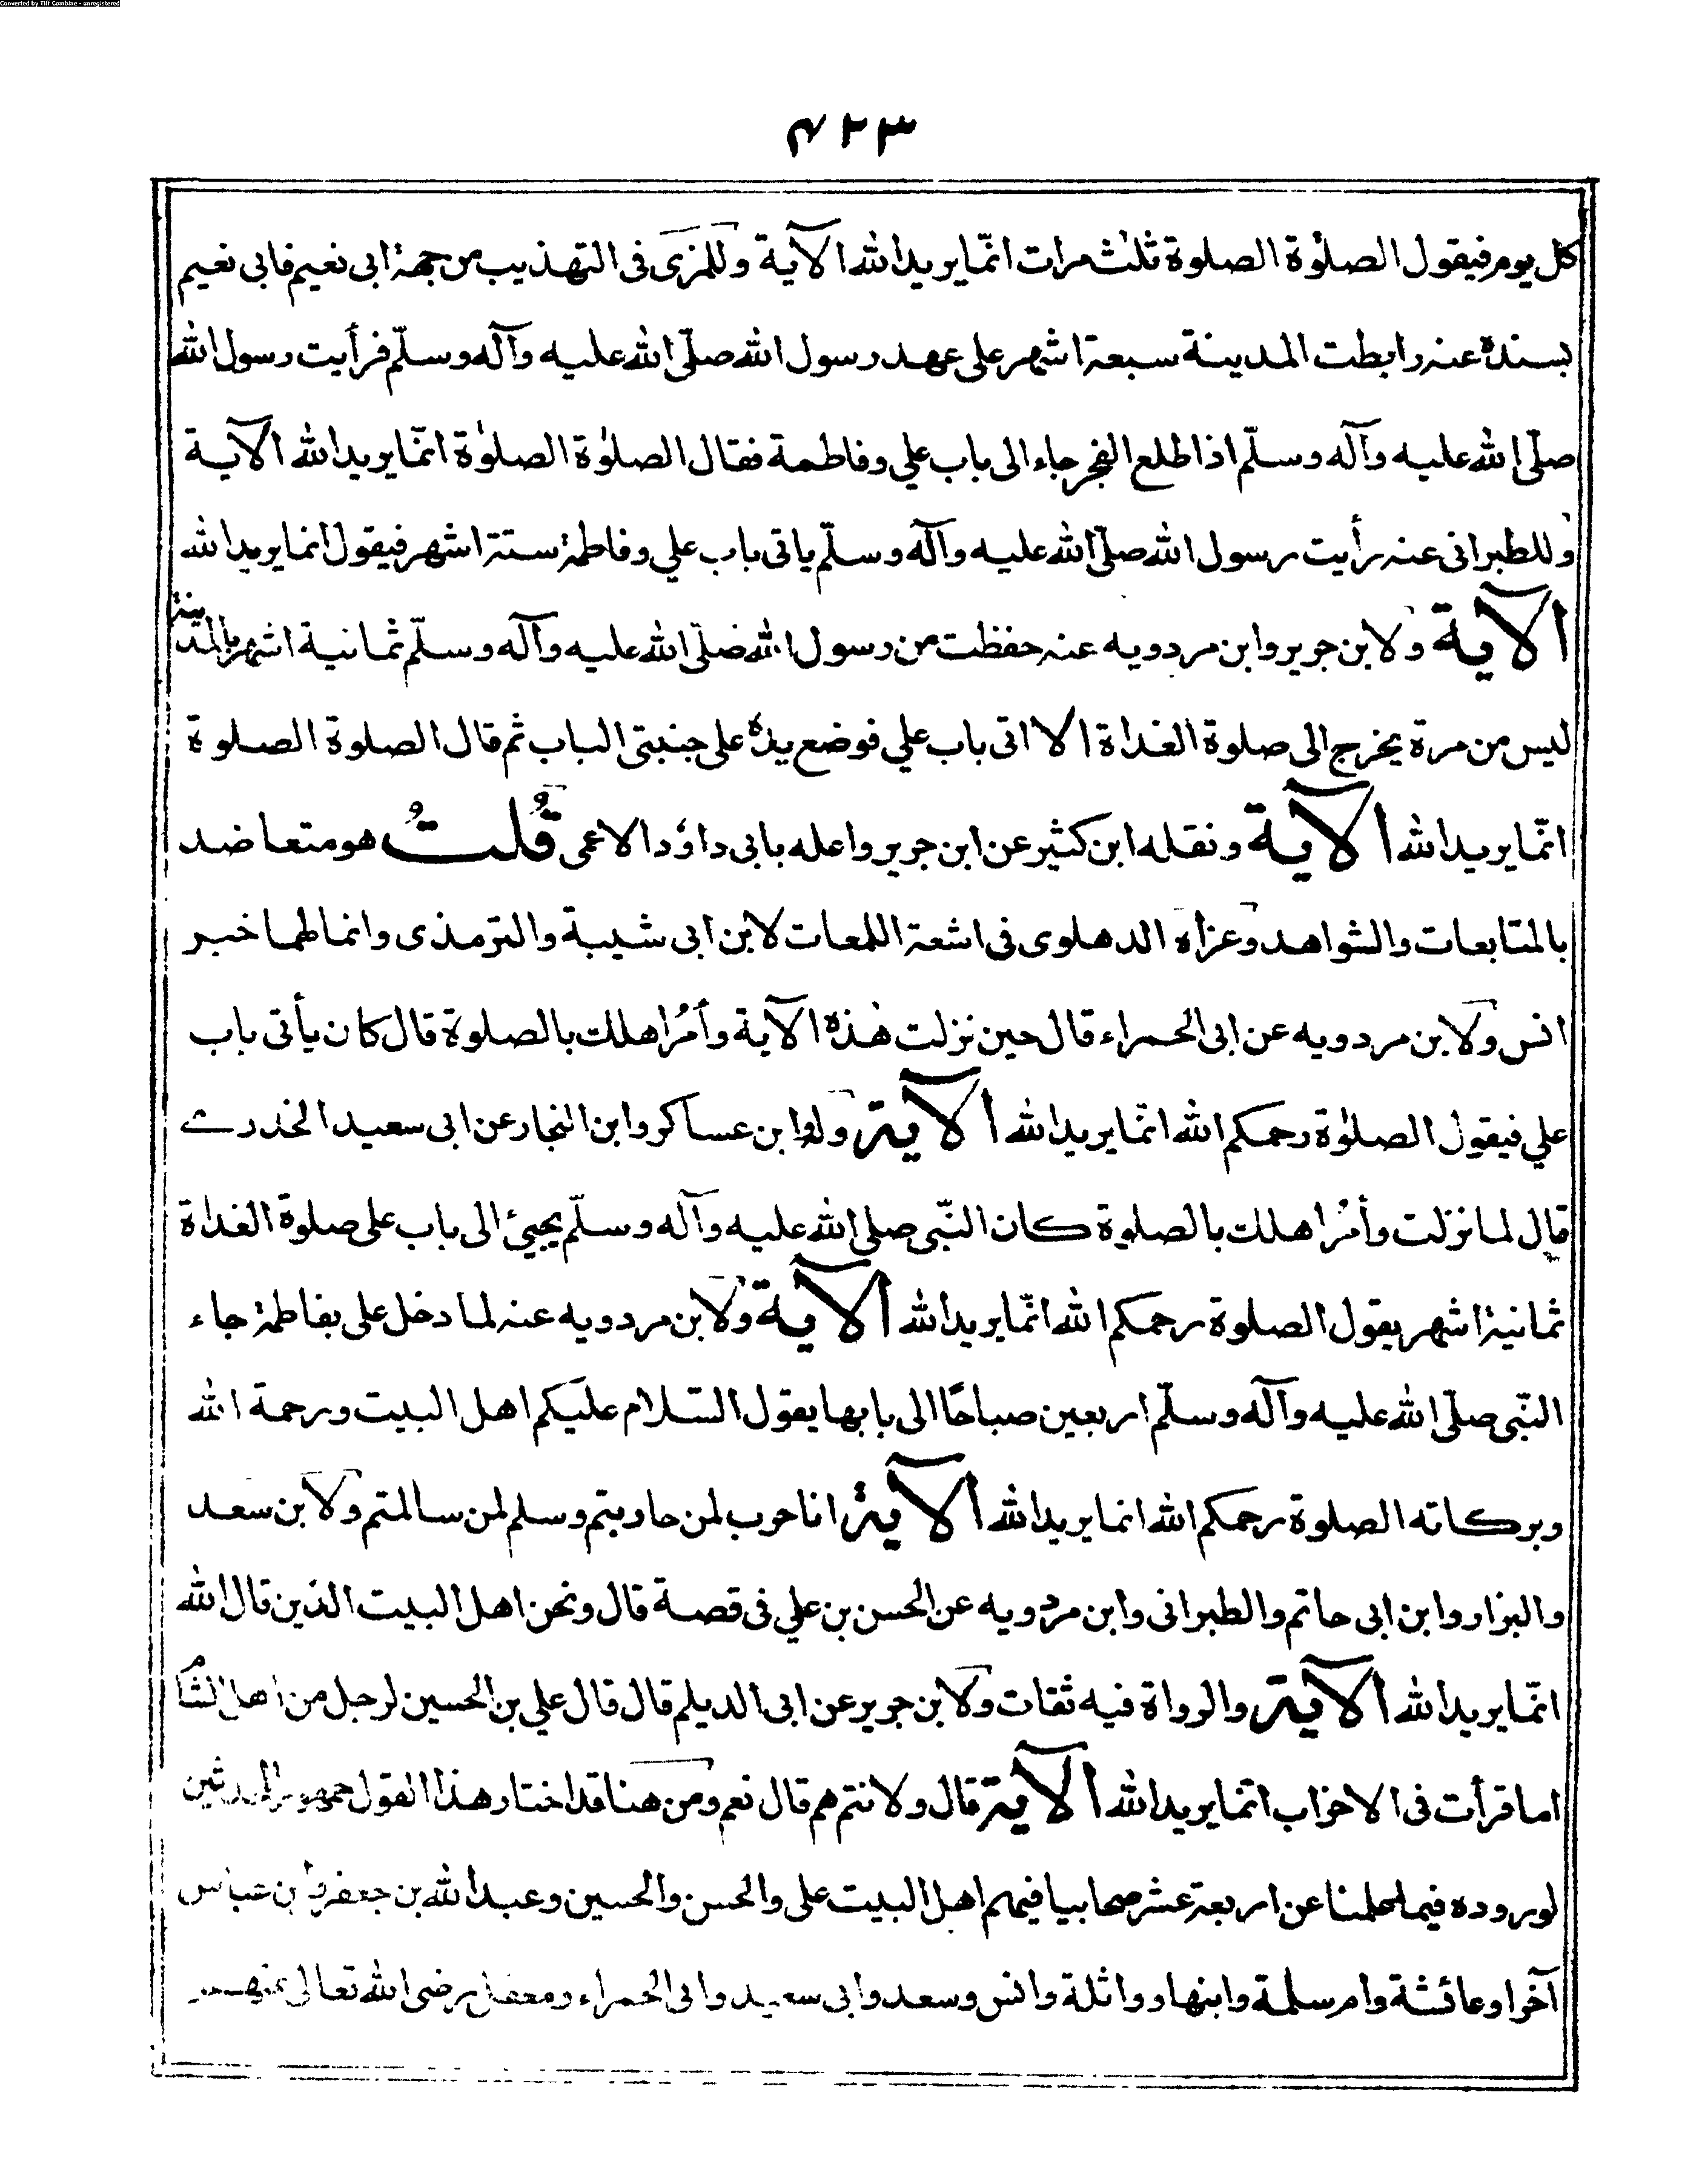 Converted by Tiff Combine - unregistered
۴۲۳
كل يوم فيقول الصلوٰة الصلوة ثلٰث مرات انّما يريد الله الآية وللمزى فى التهذيب من جهة ابى نعيم فابى نعيم
بسنده عنه رابطت المدينة سبعة اشهر على عهد رسول الله صلّى الله عليه وآله وسلّم فرأيت رسول الله
صلّى الله عليه وآله وسلّم اذا طلع الفجر جاء الى باب علي وفاطمة فقال الصلوٰة الصلوٰة انّما يريد الله الآية
وللطبرانى عنه رأيت رسول الله صلّى الله عليه وآله وسلّم ياتى باب علي وفاطمة ستة اشهر فيقول انما يريد الله
الآية ولابن جرير وابن مردويه عنه حفظت من رسول الله صلّى الله عليه وآله وسلّم ثمانية اشهر بالمدينة
ليس من مرة يخرج الى صلوة الغداة الا اتى باب علي فوضع يده على جنبتى الباب ثم قال الصلوة الصلوة
انّما يريد الله الآية ونقله ابن كثير عن ابن جرير واعله بابى داؤد الاعمى قُلتُ هو متعاضد
بالمتابعات والشواهد وعزاه الدهلوى فى اشعة اللمعات لابن ابى شيبة والترمذى وانما لهما خبر
انس ولابن مردويه عن ابى الحمراء قال حين نزلت هٰذه الآية وأمُر اهلك بالصلوة قال كان يأتى باب
علي فيقول الصلوٰة رحمكم الله انّما يريد الله الآية وله وابن عساكر وابن النجار عن ابى سعيد الخدرے
قال لما نزلت وأمُر اهلك بالصلوة كان النّبى صلى الله عليه وآله وسلّم يجيئ الى باب على صلوة الغداة
ثمانية اشهر يقول الصلوة رحمكم الله انّما يريد الله الآية ولابن مردويه عنه لما دخل على بفاطمة جاء
النّبى صلّى الله عليه وآله وسلّم اربعين صباحًا الى بابها يقول السّلام عليكم اهل البيت ورحمة الله
وبركاته الصلوة رحمكم الله انما يريد الله الآية انا حرب لمن حاربتم وسلم لمن سالمتم ولابن سعد
والبزار وابن ابى حاتم والطبرانى وابن مردويه عن الحسن بن علي فى قصة قال ونحن اهل البيت الذين قال الله
انّما يريد الله الآية والرواة فيه ثقات ولابن جرير عن ابى الديلم قال قال علي بن الحسين لرجل من اهل الشام
اما قرأت فى الاحزاب انّما يريد الله الآية قال ولانتم هم قال نعم ومن هنا قد اختار هذا القول جمهور المحدثين
لوروده فيما علمنا عن اربعة عشر صحابيا فيهم اهل البيت على والحسن والحسين وعبد الله بن جعفر وابن عباس
آخرا وعائشة وام سلمة وابنها وواثلة وانس وسعد وابى سعيد وابى الحمراء ومعقل رضى الله تعالى عنهم